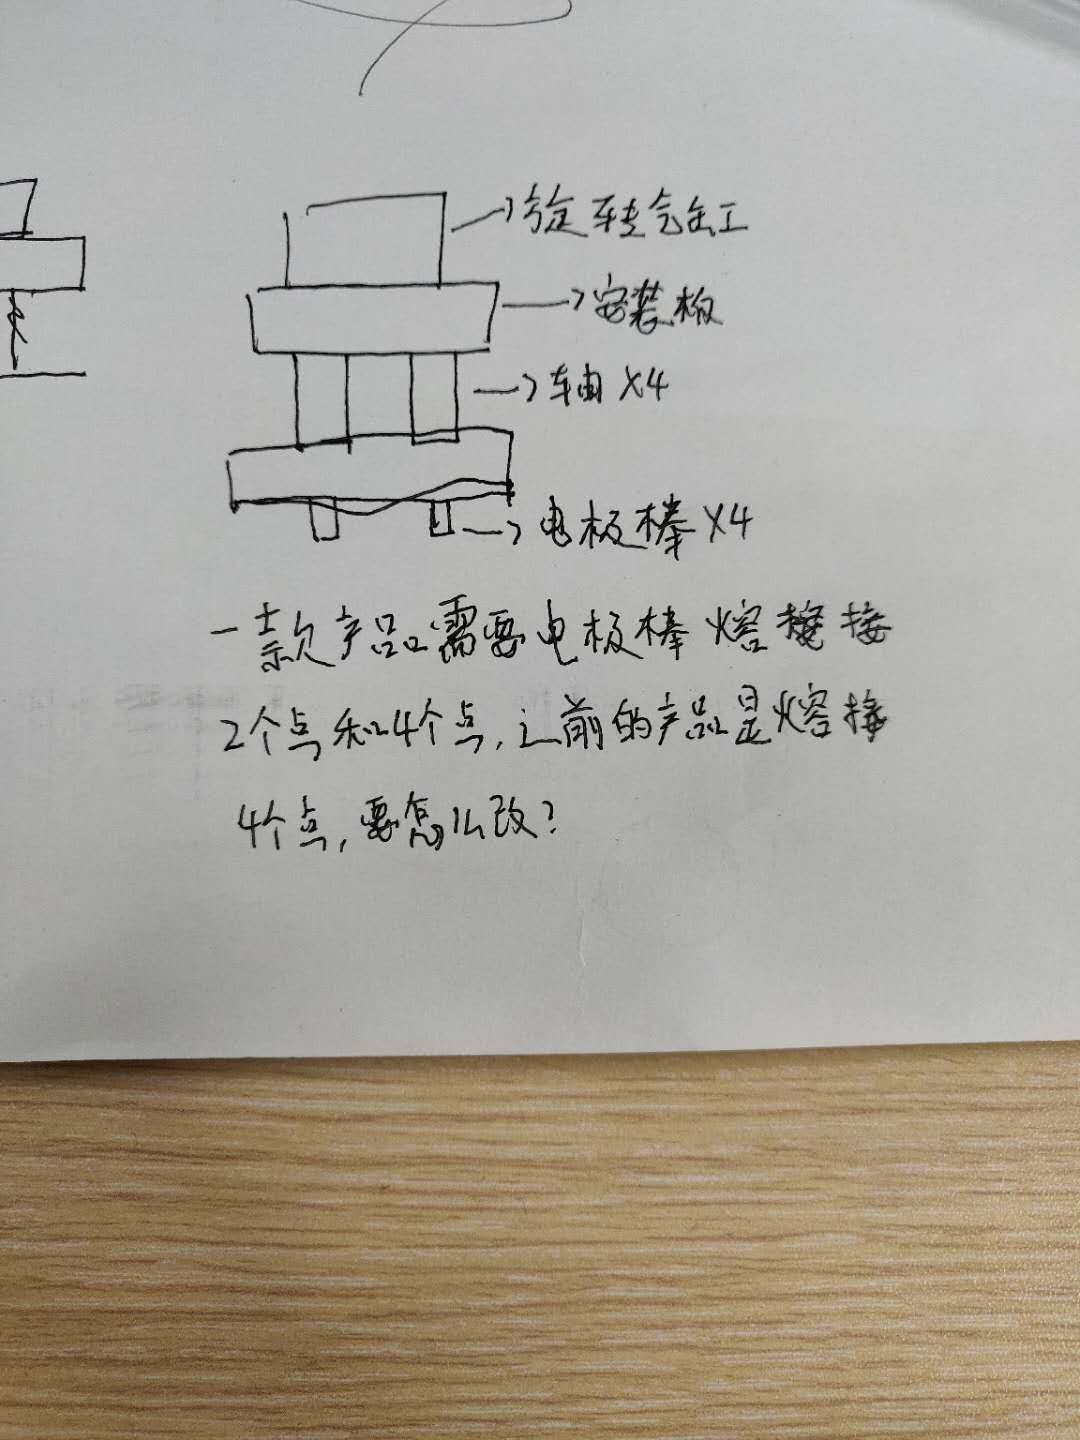 旋转气缸
安装板
轴X4
电极棒X4
一款产品需要电极棒熔接
2个点和4个点,之前的产品是熔接
4个点,要怎么改?